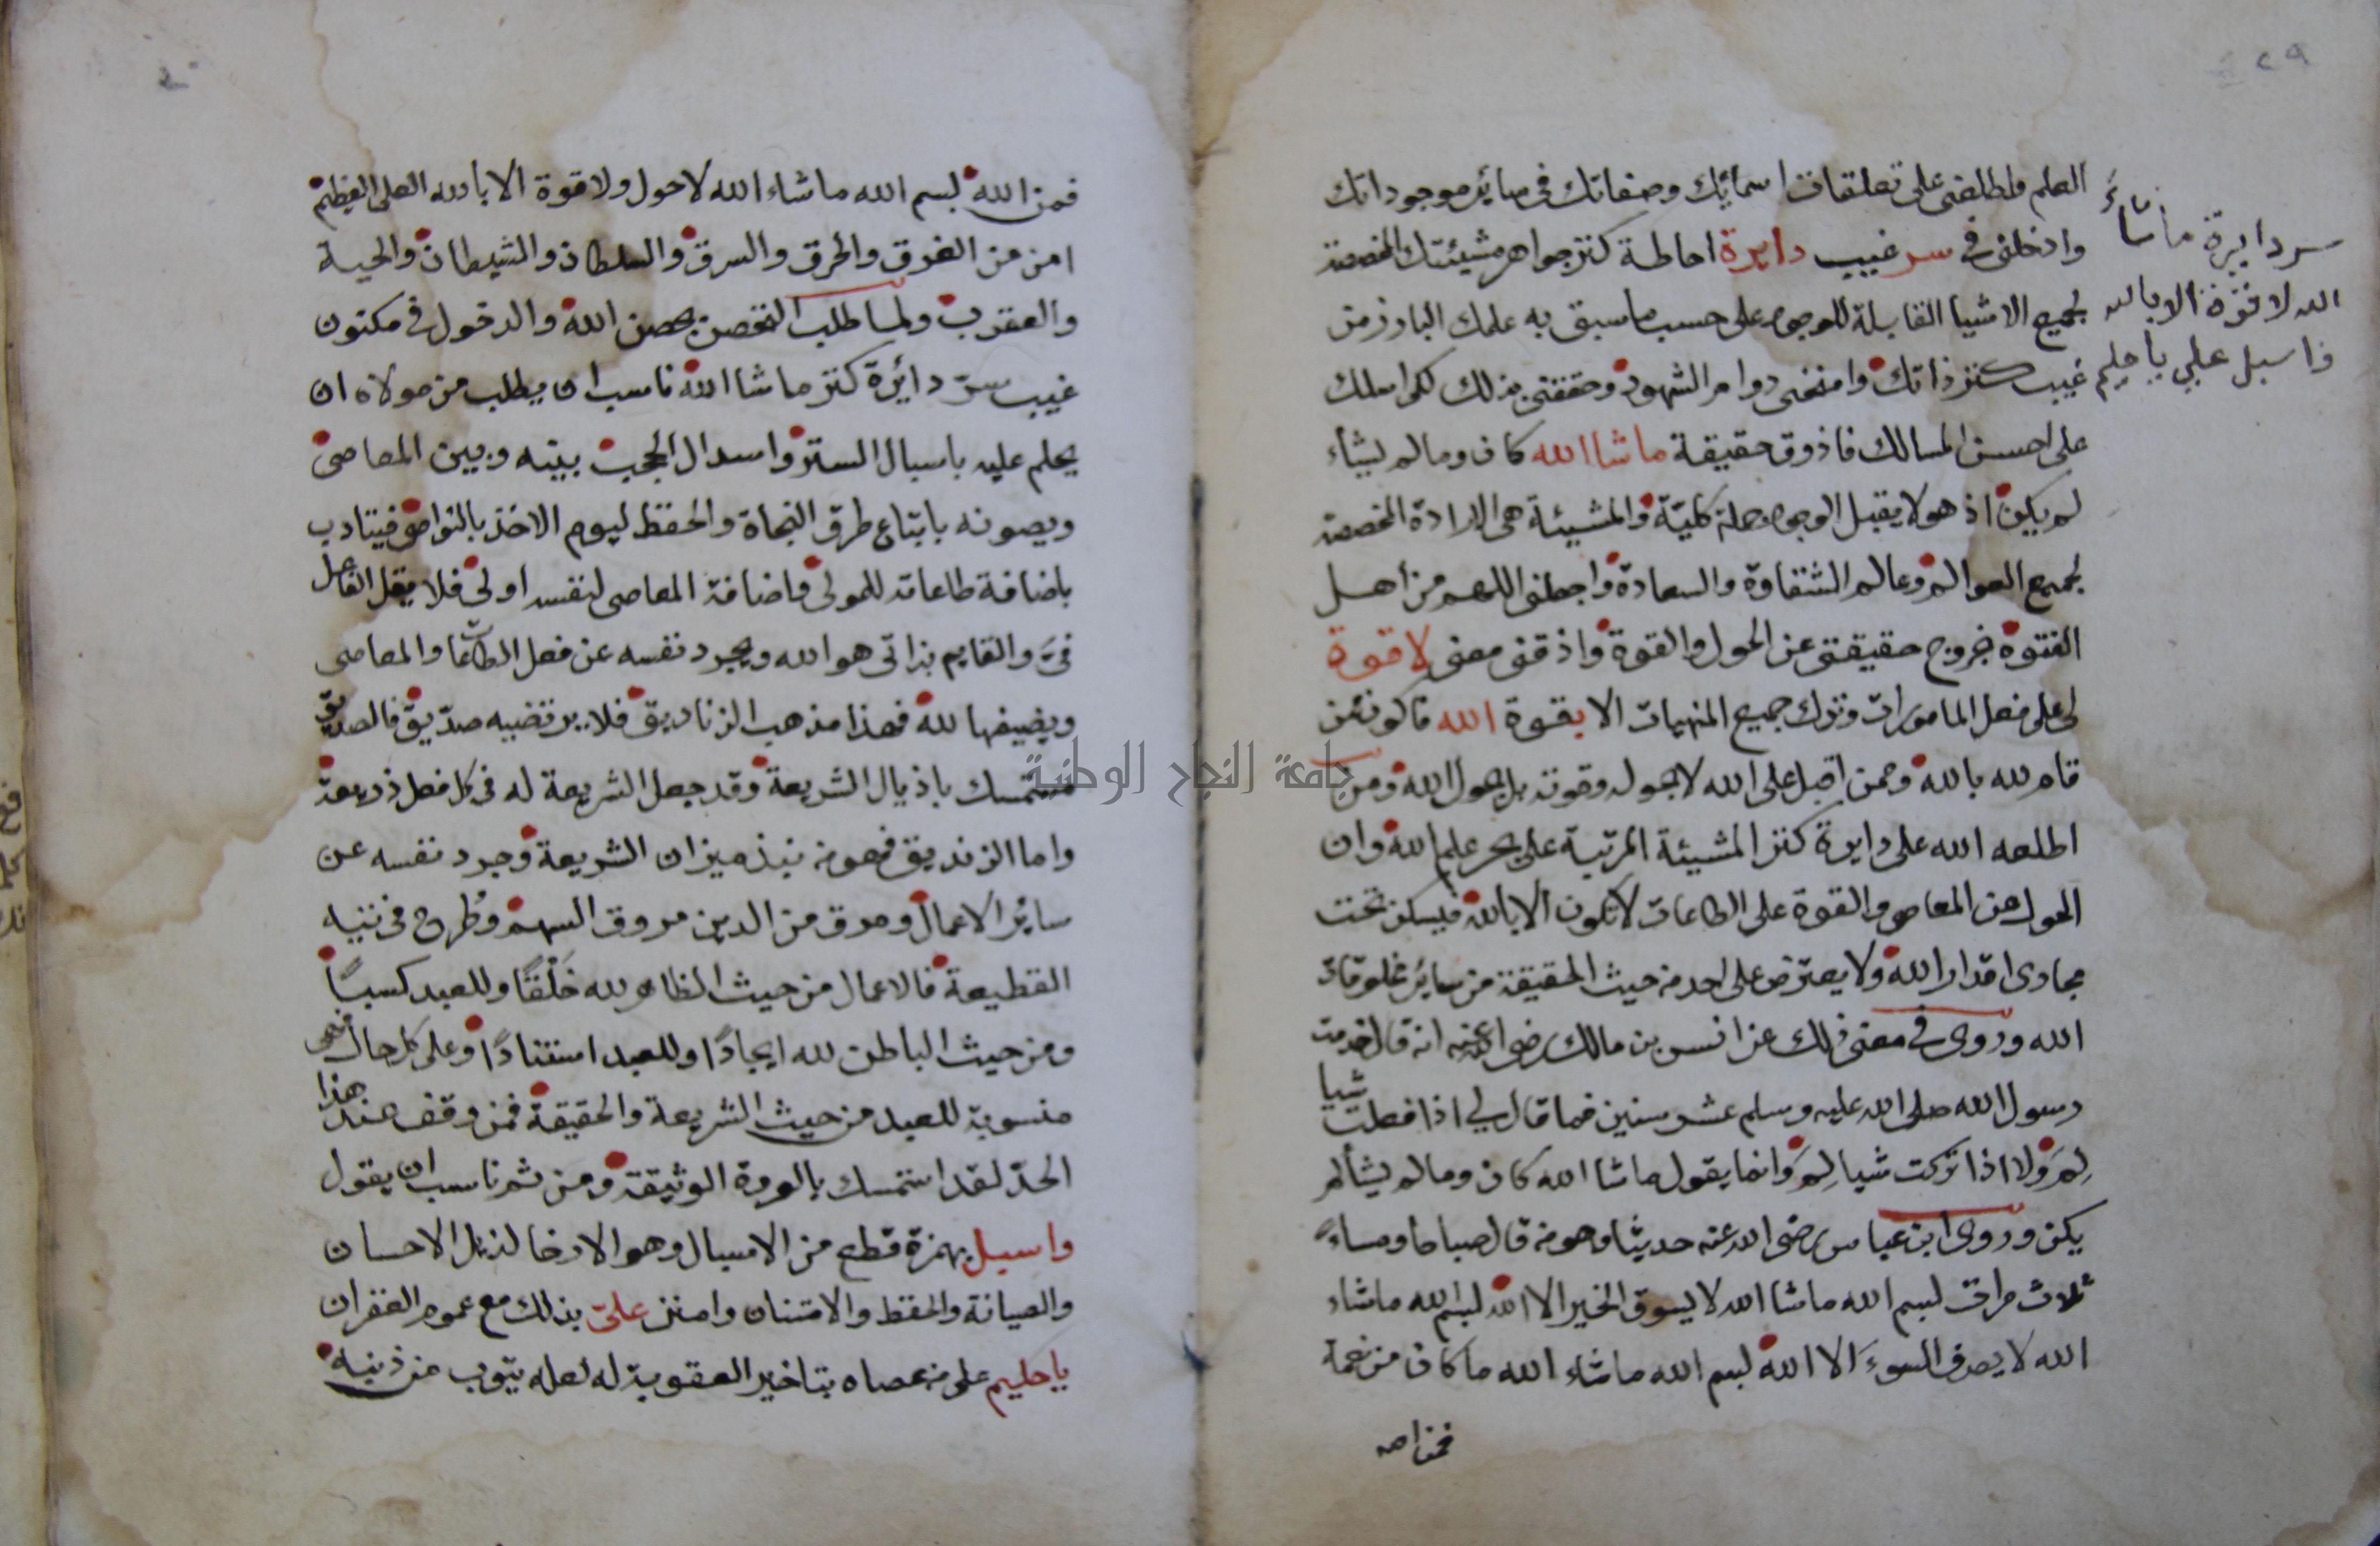 ٢٩
سر دايرة ما شاءَ
الله لا قوة الا بالله
واسبل علي يا حليم
العلم واطلعنى على تعلقات اسمائك وصفاتك فى سائر موجوداتك
وادخلنى فى سر غيب دايرة احاطة كنز جواهر مشيئتك المخصصة
لجميع الاشيا القابلة للوجود على حسب ما سبق به علمك البارز من
غيب كنز ذاتك وامنحنى دوام الشهود وحققنى بذلك لكى اسلك
على احسن المسالك فاذوق حقيقة ما شا الله كان وما لم يشاء
لم يكن اذ هو لا يقبل الوجود جملة كليّة والمشيئة هى الارادة المخصصة
لجميع العوالم وعالم الشقاوة والسعادة واجعلنى اللهم من اهل
الفتوة بخروج حقيقتى عن الحول والقوة واذقنى معنى لا قوة
لى على فعل المامورات وترك جميع المنهيات الا بقوة الله فاكون ممن
قام لله بالله وممن اقبل على الله لا بحوله وقوته بل بحول الله ومن
اطلعه الله على دايرة كنز المشيئة المرتبة على بحر علم الله وان
الحول عن المعاصى والقوة على الطاعات لا تكون الا بالله فيسكن تحت
مجارى اقدار الله ولا يعترض على احد من حيث الحقيقة من سائر مخلوقات
الله وروى فى معنى ذلك عن انس بن مالك رضى الله عنه انه قال خدمت
رسول الله صلى الله عليه وسلم عشر سنين فما قال لي اذا فعلت شيا
لِمَ ولا اذا تركت شيا لِمَ وانما يقول ما شا الله كان وما لم يشأ لم
يكن وروى ابن عباس رضى الله عنه حديثا وهو من قال صباحا ومساءً
ثلاث مرات بسم الله ما شا الله لا يسوق الخير الا الله بسم الله ما شاء
الله لا يصرف السوءَ الا الله بسم الله ما شاء الله ما كان من نعمة
فمن الله
فمن الله بسم الله ما شاء الله لا حول ولا قوة الا بالله العلى العظيم
امن من الغرق والحرق والسرق والسلطان والشيطان والحية
والعقرب ولما طلب التحصن بحصن الله والدخول فى مكنون
غيب سرّ دائرة كنز ما شا الله ناسب ان يطلب من مولاه ان
يحلم عليه باسبال الستر واسدال الحجب بينه وبين المعاصى
ويصونه باتباع طرق النجاة والحفظ ليوم الاخذ بالنواصى فيتادب
باضافة طاعاته للمولى واضافة المعاصى لنفسه اولى فلا يقل الفاعل
فىّ والقايم بذاتى هو الله ويجرد نفسه عن فعل الطاعات والمعاصى
ويضيفها لله فهذا مذهب الزناديق فلا يرتضيه صدّيق فالصديق
متمسك باذيال الشريعة وقد جعل الشريعة له فى كل فعل ذريعة
واما الزنديق فهو من نبذ ميزان الشريعة وجرد نفسه عن
سائر الاعمال ومرق من الدين مروق السهم وطُرح فى تيه
القطيعة فالاعمال من حيث الظاهر لله خَلْقًا وللعبد كسبًا
ومن حيث الباطن لله ايجادًا وللعبد استنادًا وعلى كل حال فهى
منسوبة للعبد من حيث الشريعة والحقيقة فمن وقف عند هذا
الحدّ لقد استمسك بالعروة الوثيقة ومن ثم ناسب ان يقول
واسبل بهمزة قطع من الاسبال وهو الارخا لذيل الاحسان
والصيانة والحفظ والامتنان وامنن علىّ بذلك مع عموم الغفران
يا حليم على من عصاه بتاخير العقوبة له لعله يتوب من ذنبه
جامعة النجاح الوطنية